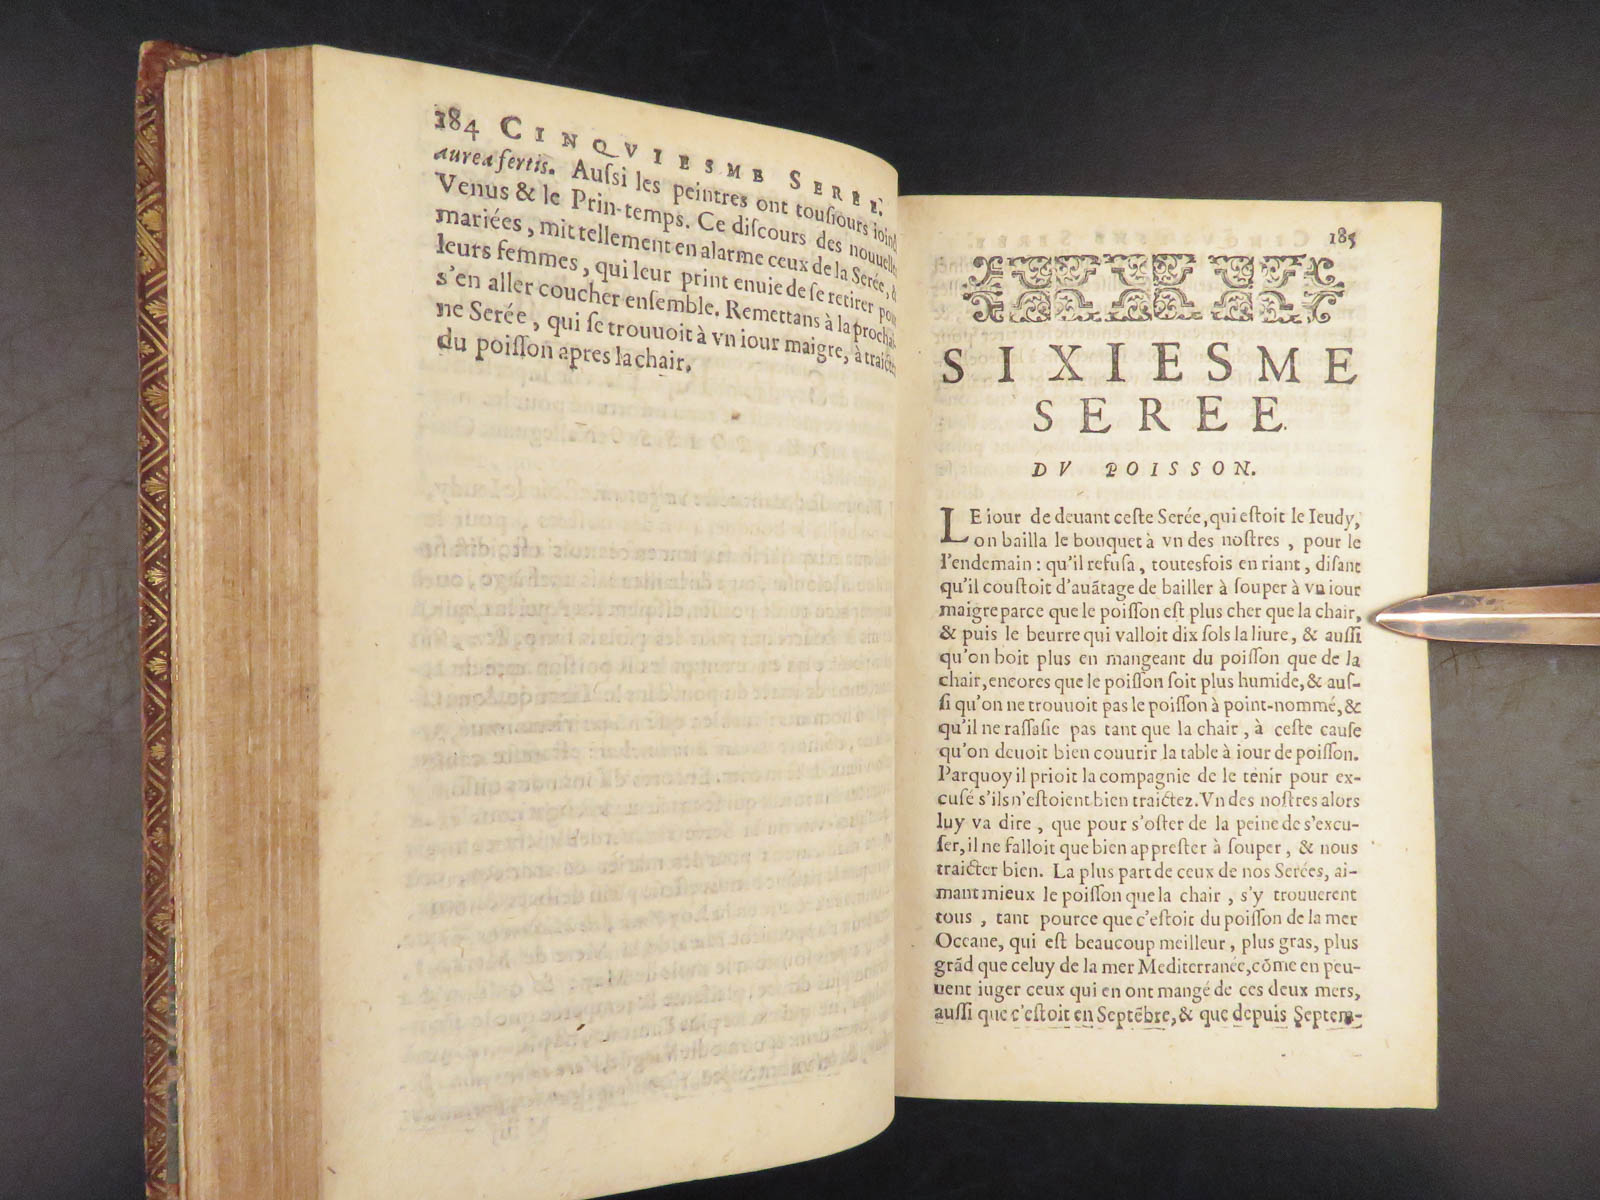 184 CINQVIESME SEREE.
aurea fertis. Auſsi les peintres ont touſiours ioinct
Venus & le Prin-temps. Ce diſcours des nouuelles
mariées, mit tellement en alarme ceux de la Serée, &
leurs femmes, qui leur print enuie de ſe retirer pour
s'en aller coucher enſemble. Remettans à la prochai-
ne Serée, qui ſe trouuoit à vn iour maigre, à traicter
du poiſſon apres la chair.
185
SIXIESME
SEREE.
DV POISSON.
LE iour de deuant ceſte Serée, qui eſtoit le Ieudy,
on bailla le bouquet à vn des noſtres, pour le
l'endemain: qu'il refuſa, toutesfois en riant, diſant
qu'il couſtoit d'auãtage de bailler à ſouper à vn iour
maigre parce que le poiſſon eſt plus cher que la chair,
& puis le beurre qui valloit dix ſols la liure, & auſſi
qu'on boit plus en mangeant du poiſſon que de la
chair, encores que le poiſſon ſoit plus humide, & auſ-
ſi qu'on ne trouuoit pas le poiſſon à point-nommé, &
qu'il ne raſſaſie pas tant que la chair, à ceſte cauſe
qu'on deuoit bien couurir la table à iour de poiſſon.
Parquoy il prioit la compagnie de le tenir pour ex-
cuſé s'ils n'eſtoient bien traictez. Vn des noſtres alors
luy va dire, que pour s'oſter de la peine de s'excu-
ſer, il ne falloit que bien appreſter à ſouper, & nous
traicter bien. La plus part de ceux de nos Serées, ai-
mant mieux le poiſſon que la chair, s'y trouuerent
tous, tant pource que c'eſtoit du poiſſon de la mer
Occane, qui eſt beaucoup meilleur, plus gras, plus
grãd que celuy de la mer Mediterranée, cõme en peu-
uent iuger ceux qui en ont mangé de ces deux mers,
auſſi que c'eſtoit en Septẽbre, & que depuis Septem-